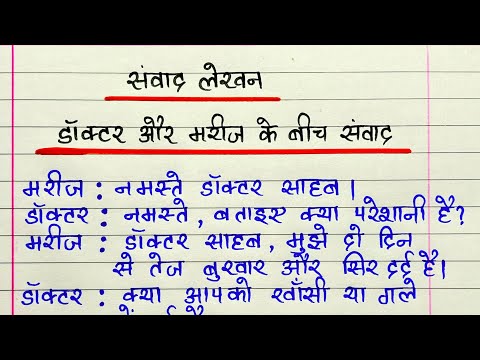 संवाद लेखन
डॉक्टर और मरीज के बीच संवाद
मरीज : नमस्ते डॉक्टर साहब।
डॉक्टर : नमस्ते, बताइए क्या परेशानी है?
मरीज : डॉक्टर साहब, मुझे दो दिन
से तेज बुखार और सिर दर्द है।
डॉक्टर : क्या आपको खाँसी या गले